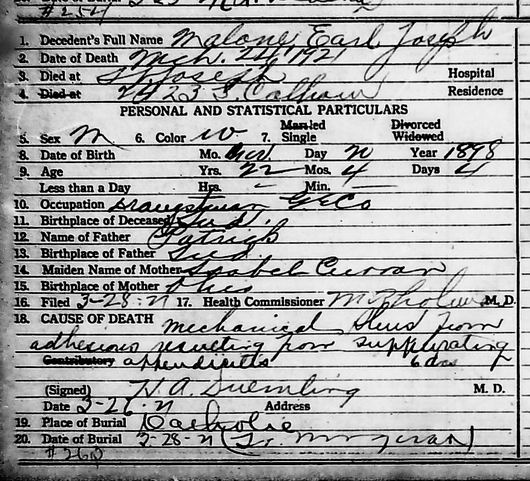 #254
1. Decedent's Full Name Malone, Earl Joseph
2. Date of Death Mch. 24, 1921
3. Died at St. Joseph Hospital
4. Died at 2423 S. Calhoun Residence
PERSONAL AND STATISTICAL PARTICULARS
5. Sex M 6. Color W 7. Married Single Divorced Widowed
8. Date of Birth Mo. Nov. Day 20 Year 1898
9. Age Yrs. 22 Mos. 4 Days 4
Less than a Day Hrs. - Min. -
10. Occupation Draughtsman G E Co
11. Birthplace of Deceased Ind.
12. Name of Father Patrick
13. Birthplace of Father Ind.
14. Maiden Name of Mother Isabel Curran
15. Birthplace of Mother Ohio
16. Filed 3-28-21 17. Health Commissioner M. D.
18. CAUSE OF DEATH Mechanical Ileus from
adhesions resulting from suppurating
Contributory appendicitis 6 das
(Signed) H. A. Duemling M. D.
Date 3-26-21 Address
19. Place of Burial Catholic
20. Date of Burial 3-28-21
#260